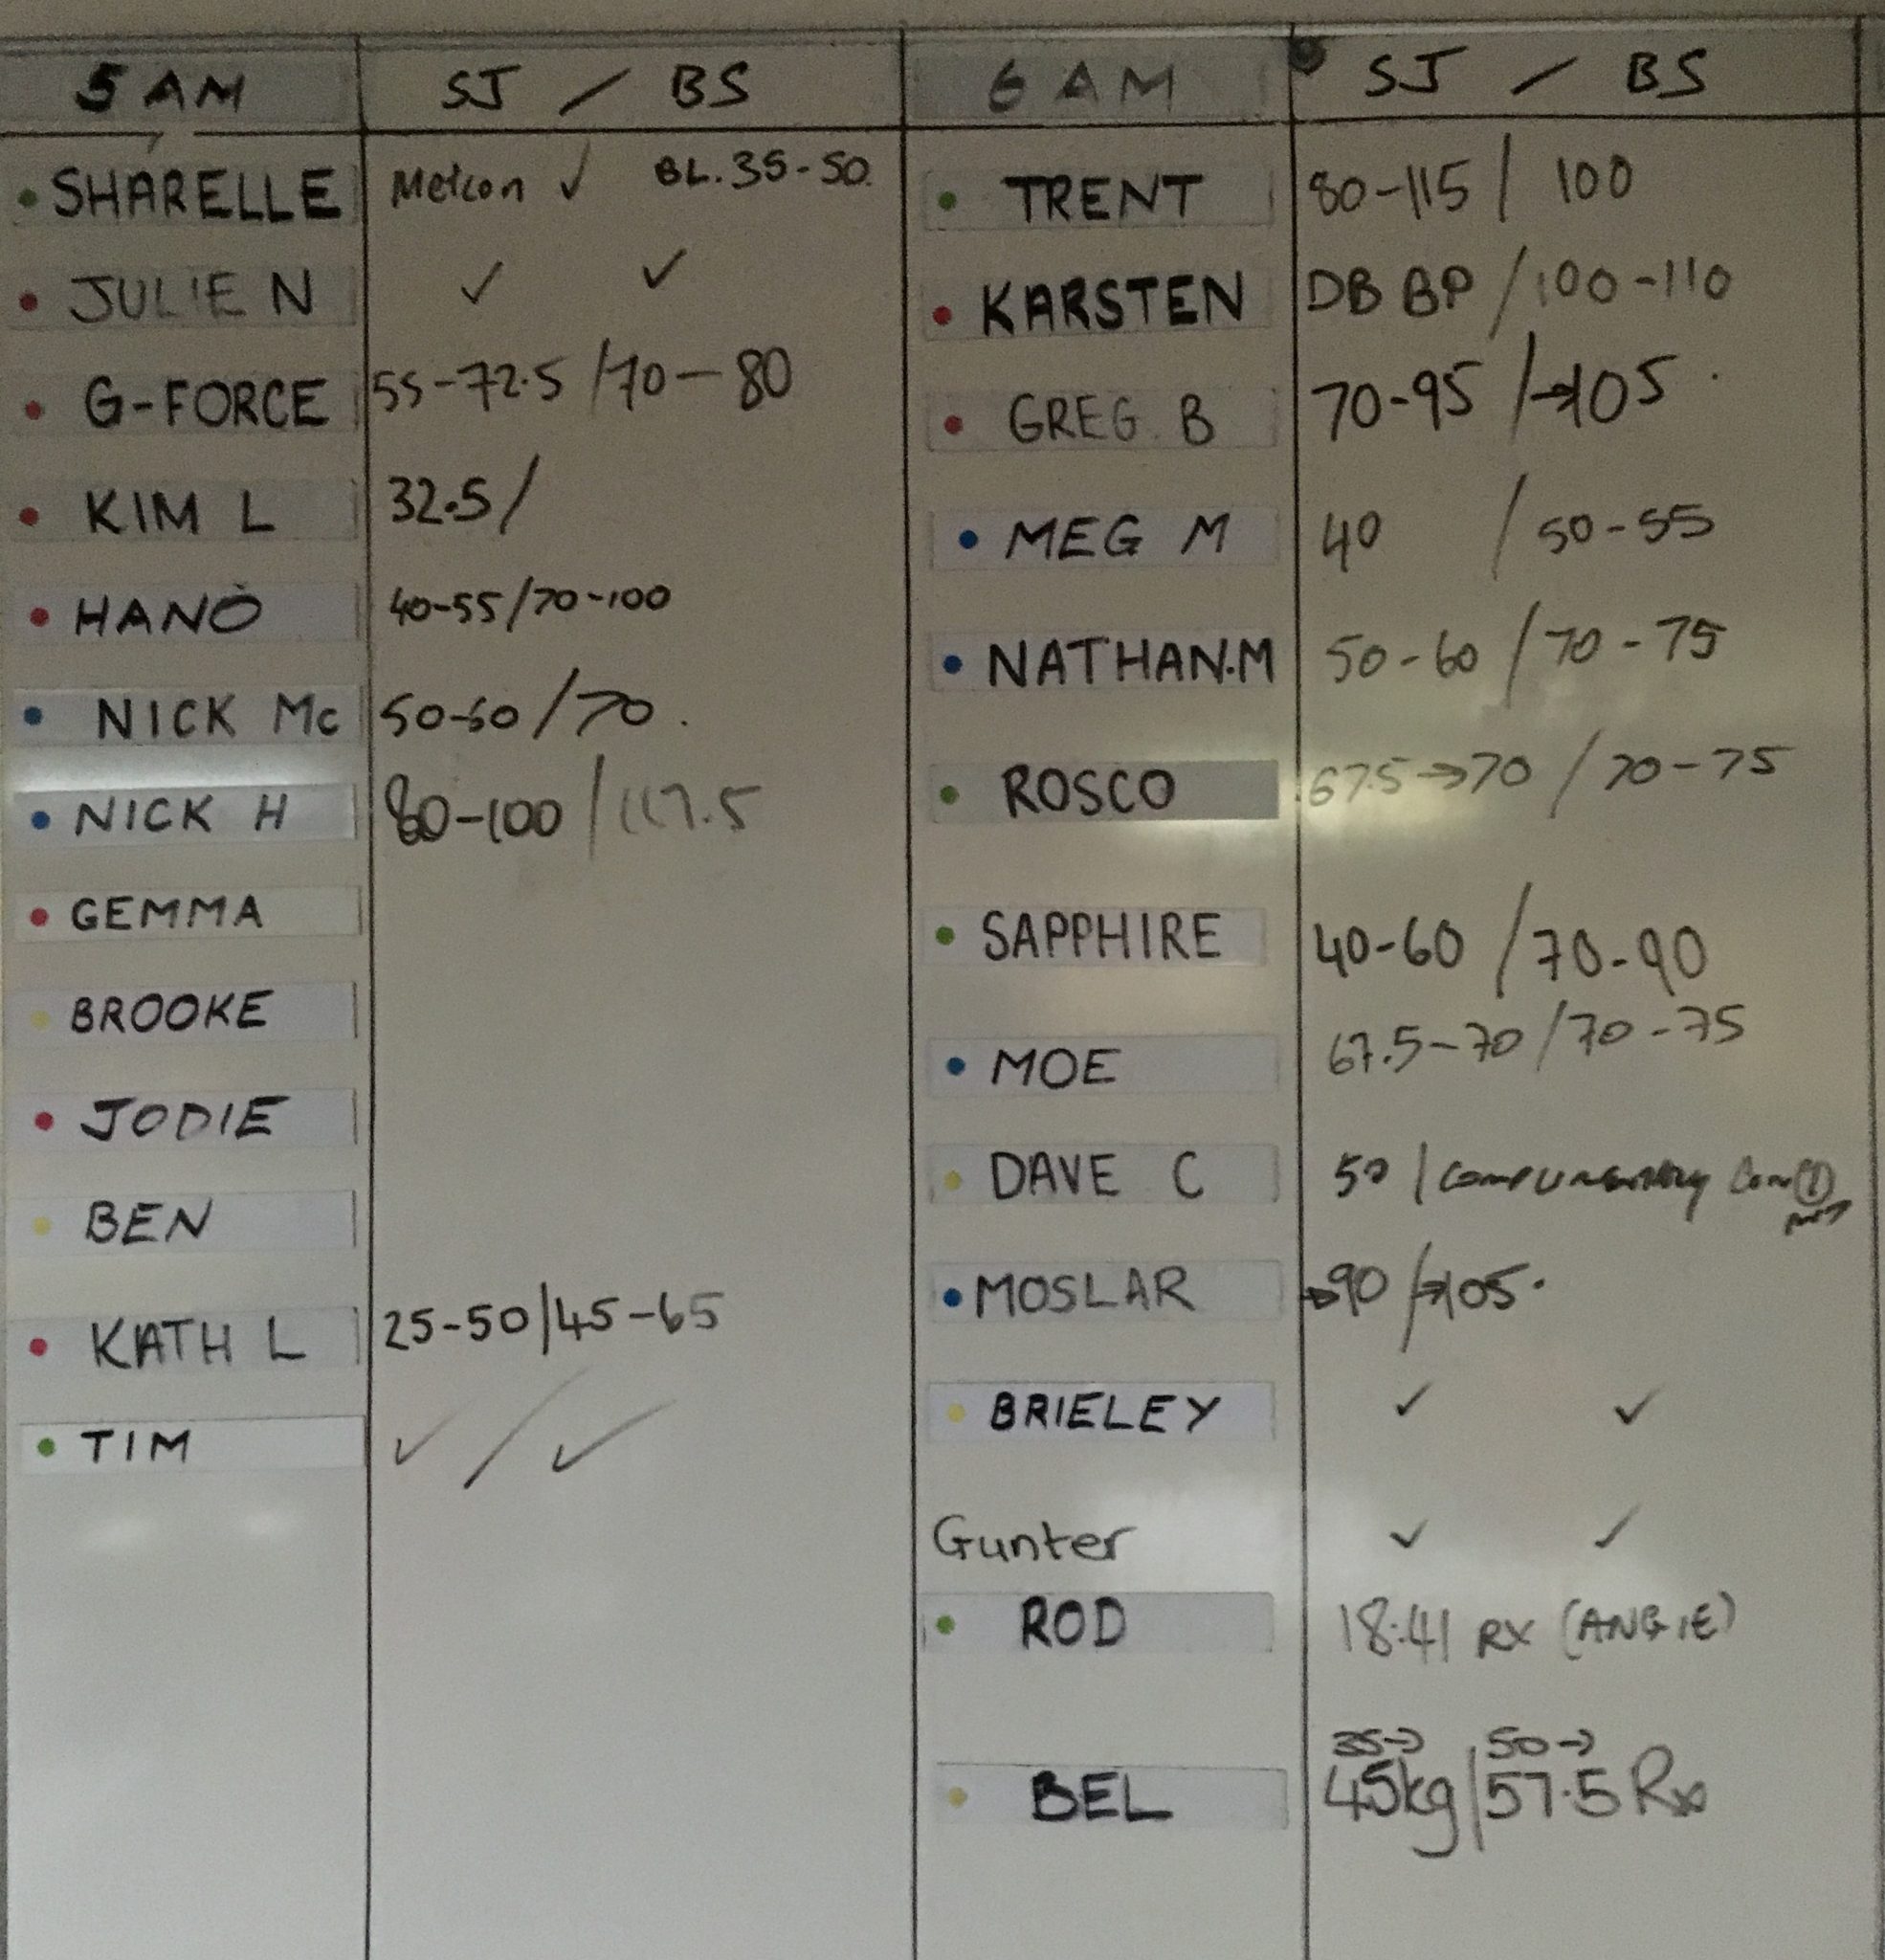 5 AM SJ / BS
SHARELLE Metcon ✓ BL.35-50.
JULIE N ✓ ✓
G-FORCE 55-72.5 / 70-80
KIM L 32.5/
HANO 40-55/70-100
NICK Mc 50-60/70.
NICK H 80-100/117.5
GEMMA
BROOKE
JODIE
BEN
KATH L 25-50/45-65
TIM ✓ / ✓
6 AM SJ / BS
TRENT 80-115 / 100
KARSTEN DB BP / 100-110
GREG B 70-95 / →105.
MEG M 40 / 50-55
NATHAN.M 50-60 / 70-75
ROSCO 67.5→70 / 70-75
SAPPHIRE 40-60 / 70-90
MOE 67.5-70 / 70-75
DAVE C 50 /
MOSLAR →90 / →105.
BRIELEY ✓ ✓
Gunter ✓ ✓
ROD 18:41 RX (ANGIE)
35→ 50→
BEL 45kg/57.5 Rx